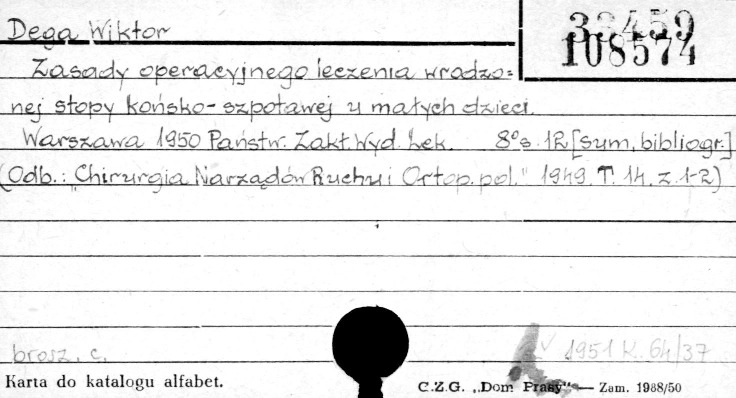 Dega Wiktor
108574
Zasady operacyjnego leczenia wrodzo=
nej stopy końsko-szpotawej u małych dzieci.
Warszawa 1950 Państw. Zakł. Wyd. Lek. 8° s. 12 [sum, bibliogr.]
(Odb.: "Chirurgia Narządów Ruchu i Ortop. pol." 1949. T. 14. z. 1-2)
brosz. c.
1951 K. 64/37
Karta do katalogu alfabet.
C.Z.G. „Dom Prasy" — Zam. 1988/50